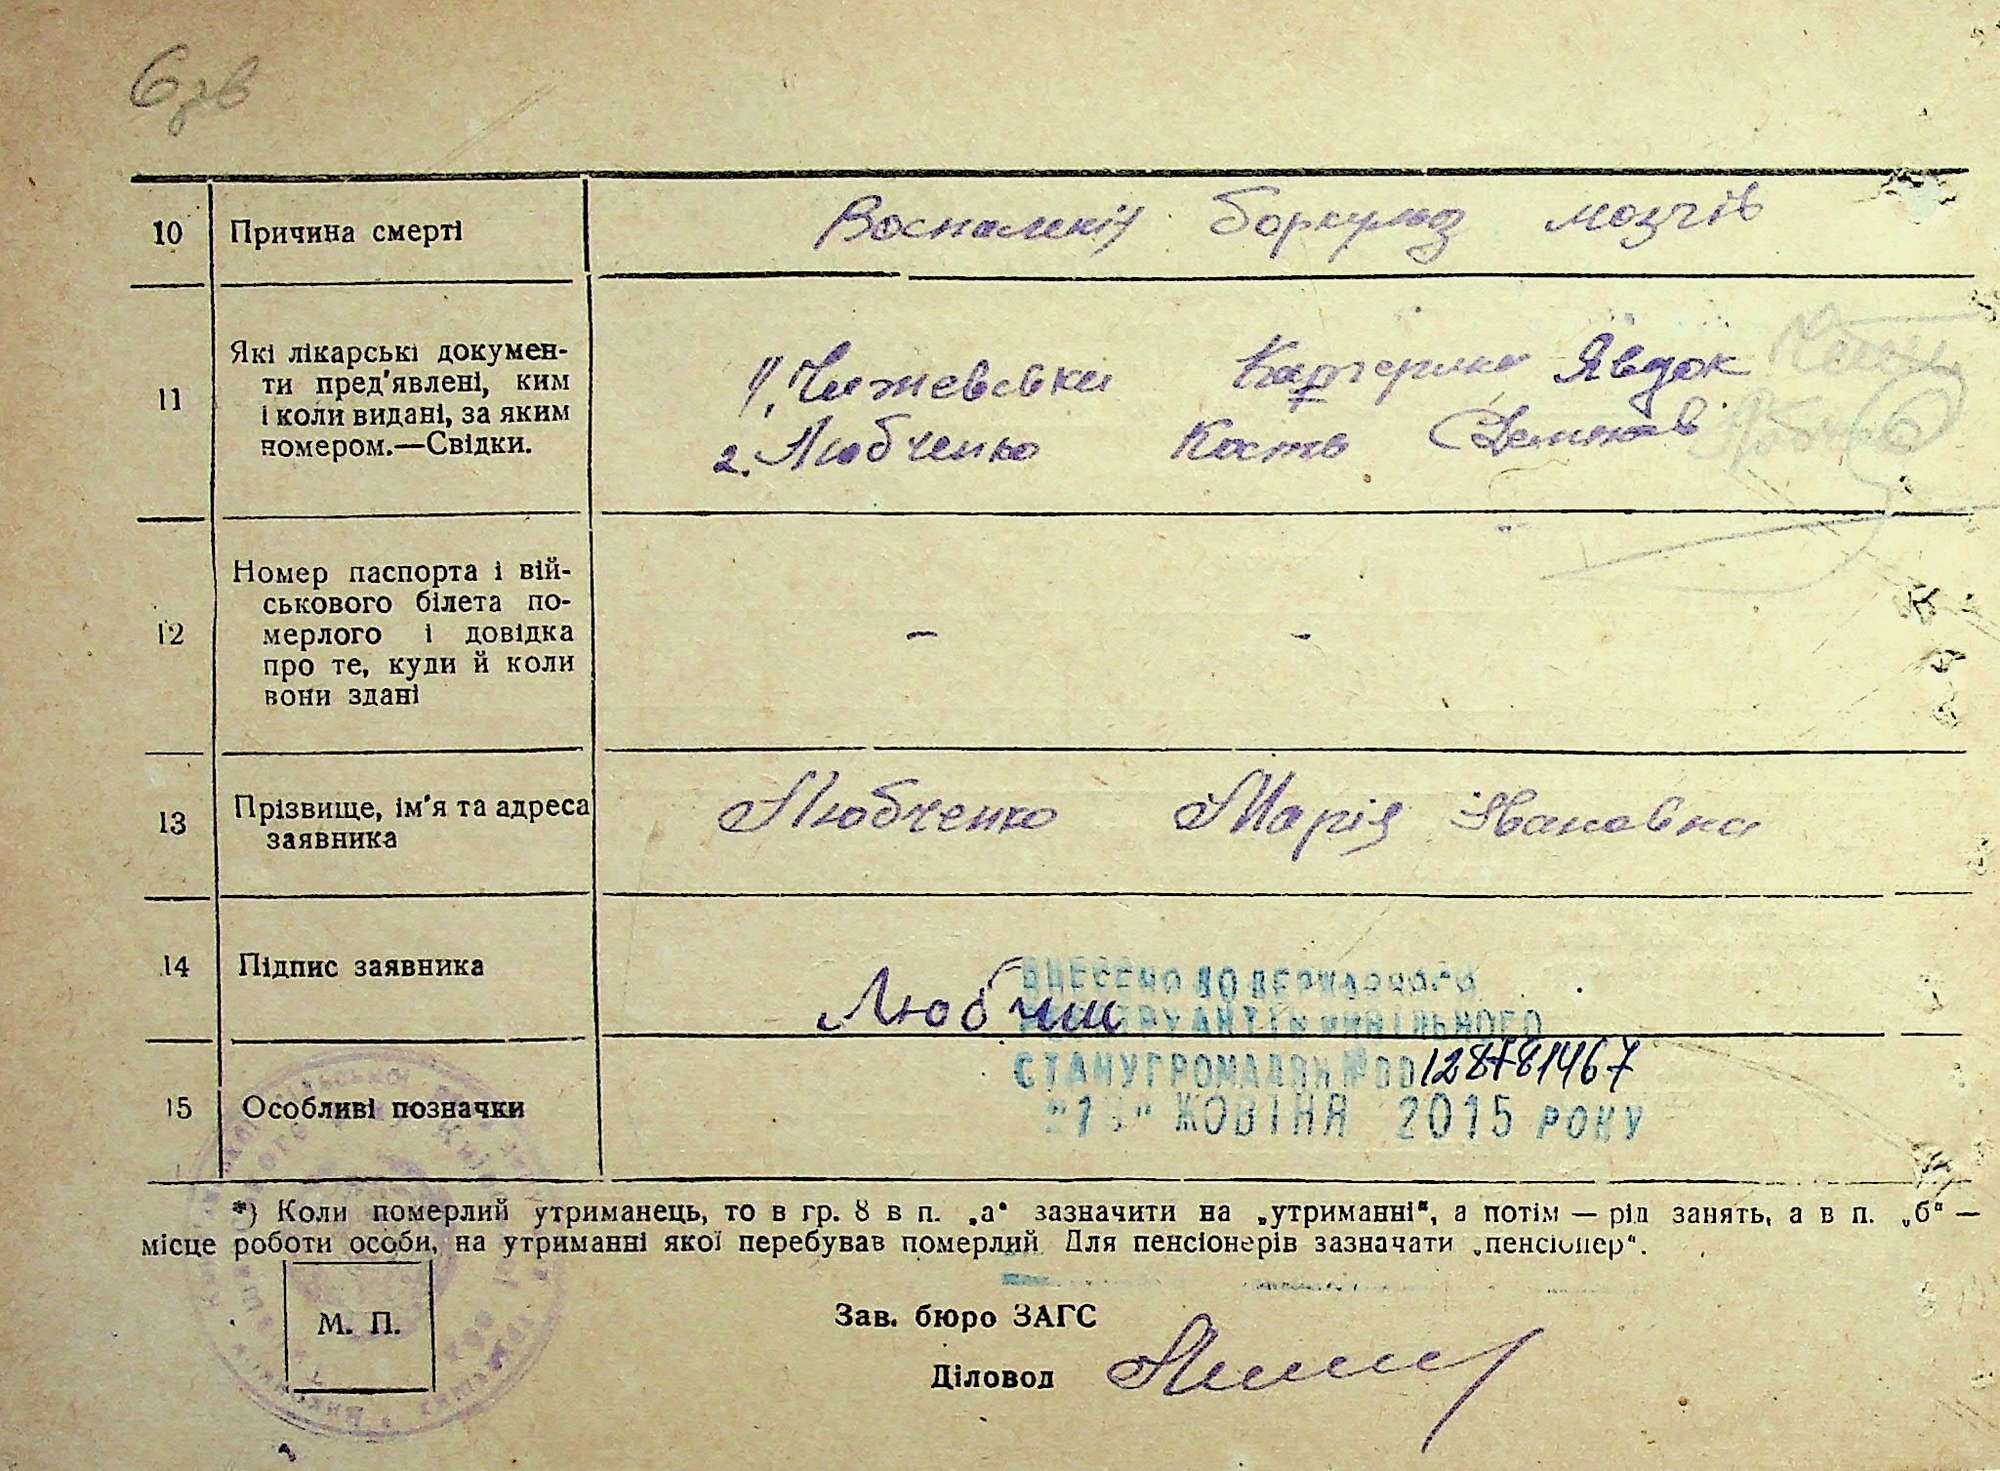 6зв
10 Причина смерті Воспаленія боркульоз мозгів
11 Які лікарські докумен-
ти пред'явлені, ким
і коли видані, за яким
номером.—Свідки.
1. Чижевська Катерина Явдок
2. Любченко Кость Семенов
12 Номер паспорта і вій-
ськового білета по-
мерлого і довідка
про те, куди й коли
вони здані
- -
13 Прізвище, ім'я та адреса
заявника
Любченко Марія Ивановна
14 Підпис заявника
ВНЕСЕНО ДО ДЕРЖАВНОГО
ЦИВІЛЬНОГО
СТАНУ ГРОМАДЯН № 00128781467
15 Особливі позначки
ЖОВТНЯ 2015 РОКУ
*) Коли померлий утриманець, то в гр. 8 в п. „а“ зазначити на „утриманні“, а потім — рід занять, а в п. „б“ —
місце роботи особи, на утриманні якої перебував померлий Для пенсіонерів зазначати „пенсіонер“.
М. П.
Зав. бюро ЗАГС
Діловод